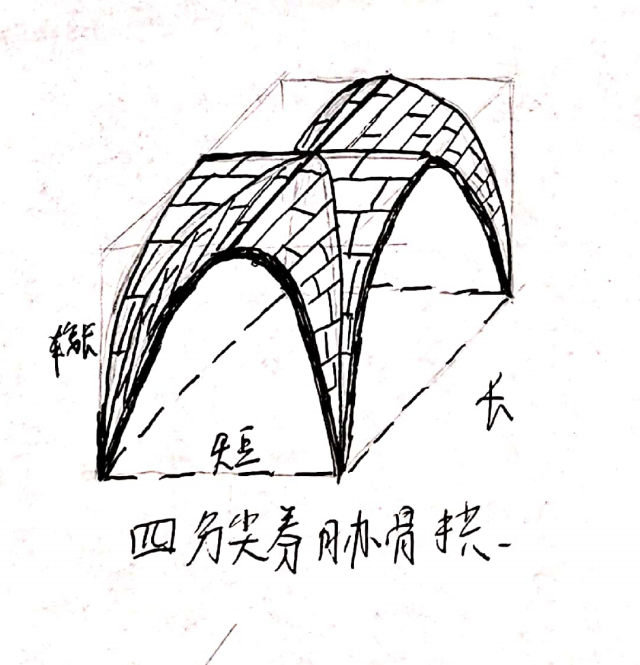 短
长
四分尖券胁骨拱